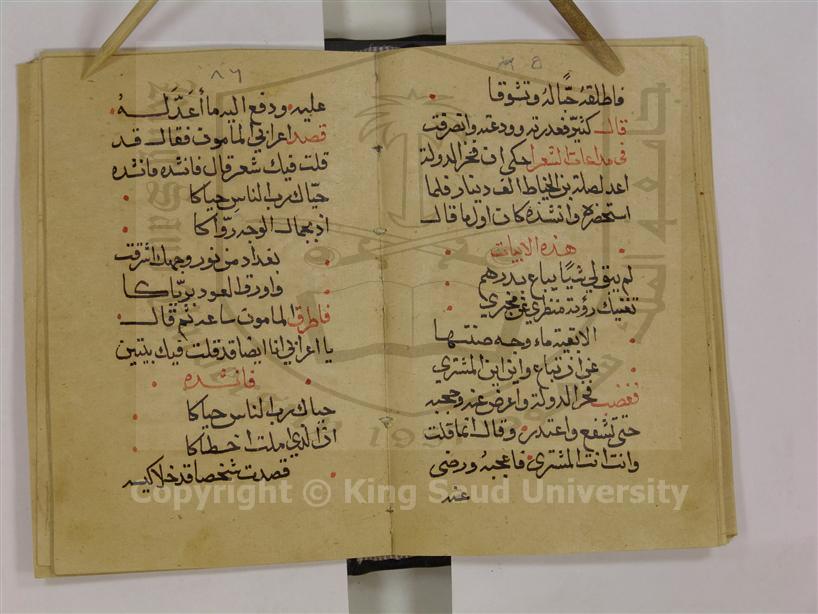 فاطلقه حبًا له وتشوقا
قال كثير فعذرته وودعته وانصرفت
في مداعبات الشعرا حكي ان فخر الدولة
اعد لصلة بن الخياط الف دينار فلما
استحضره وانشده كان اول ما قال
هذه الابيات
لم يبق لي شيًا يباع بدرهم
تغنيك رؤية منظري عن مخبري
الا بقية ماء وجه صنتها
عن ان تباع واين اين المشتري
فغضب فخر الدولة واعرض عنه وحجبه
حتى تشفع واعتذر وقال انما قلت
وانت انت المشتري فاعجبه ورضى
عنه
٨٦
عليه ودفع اليه ما أعدّ له
قصد اعرابي المامون فقال قد
قلت فيك شعر قال فانشده فانشده
حيّاك رب الناس حياكا
اذ بجمال الوجه روّاكا
بغداد من نور وجهك اشرقت
واورق العود بريّاكا
فاطرق المامون ساعة ثم قال
يا اعرابي انا ايضا قد قلت فيك بيتين
فانشده
حياك رب الناس حياكا
اذ الذي املت اخطاكا
قصدت شخصا قد خلا كيسه
Copyright © King Saud University